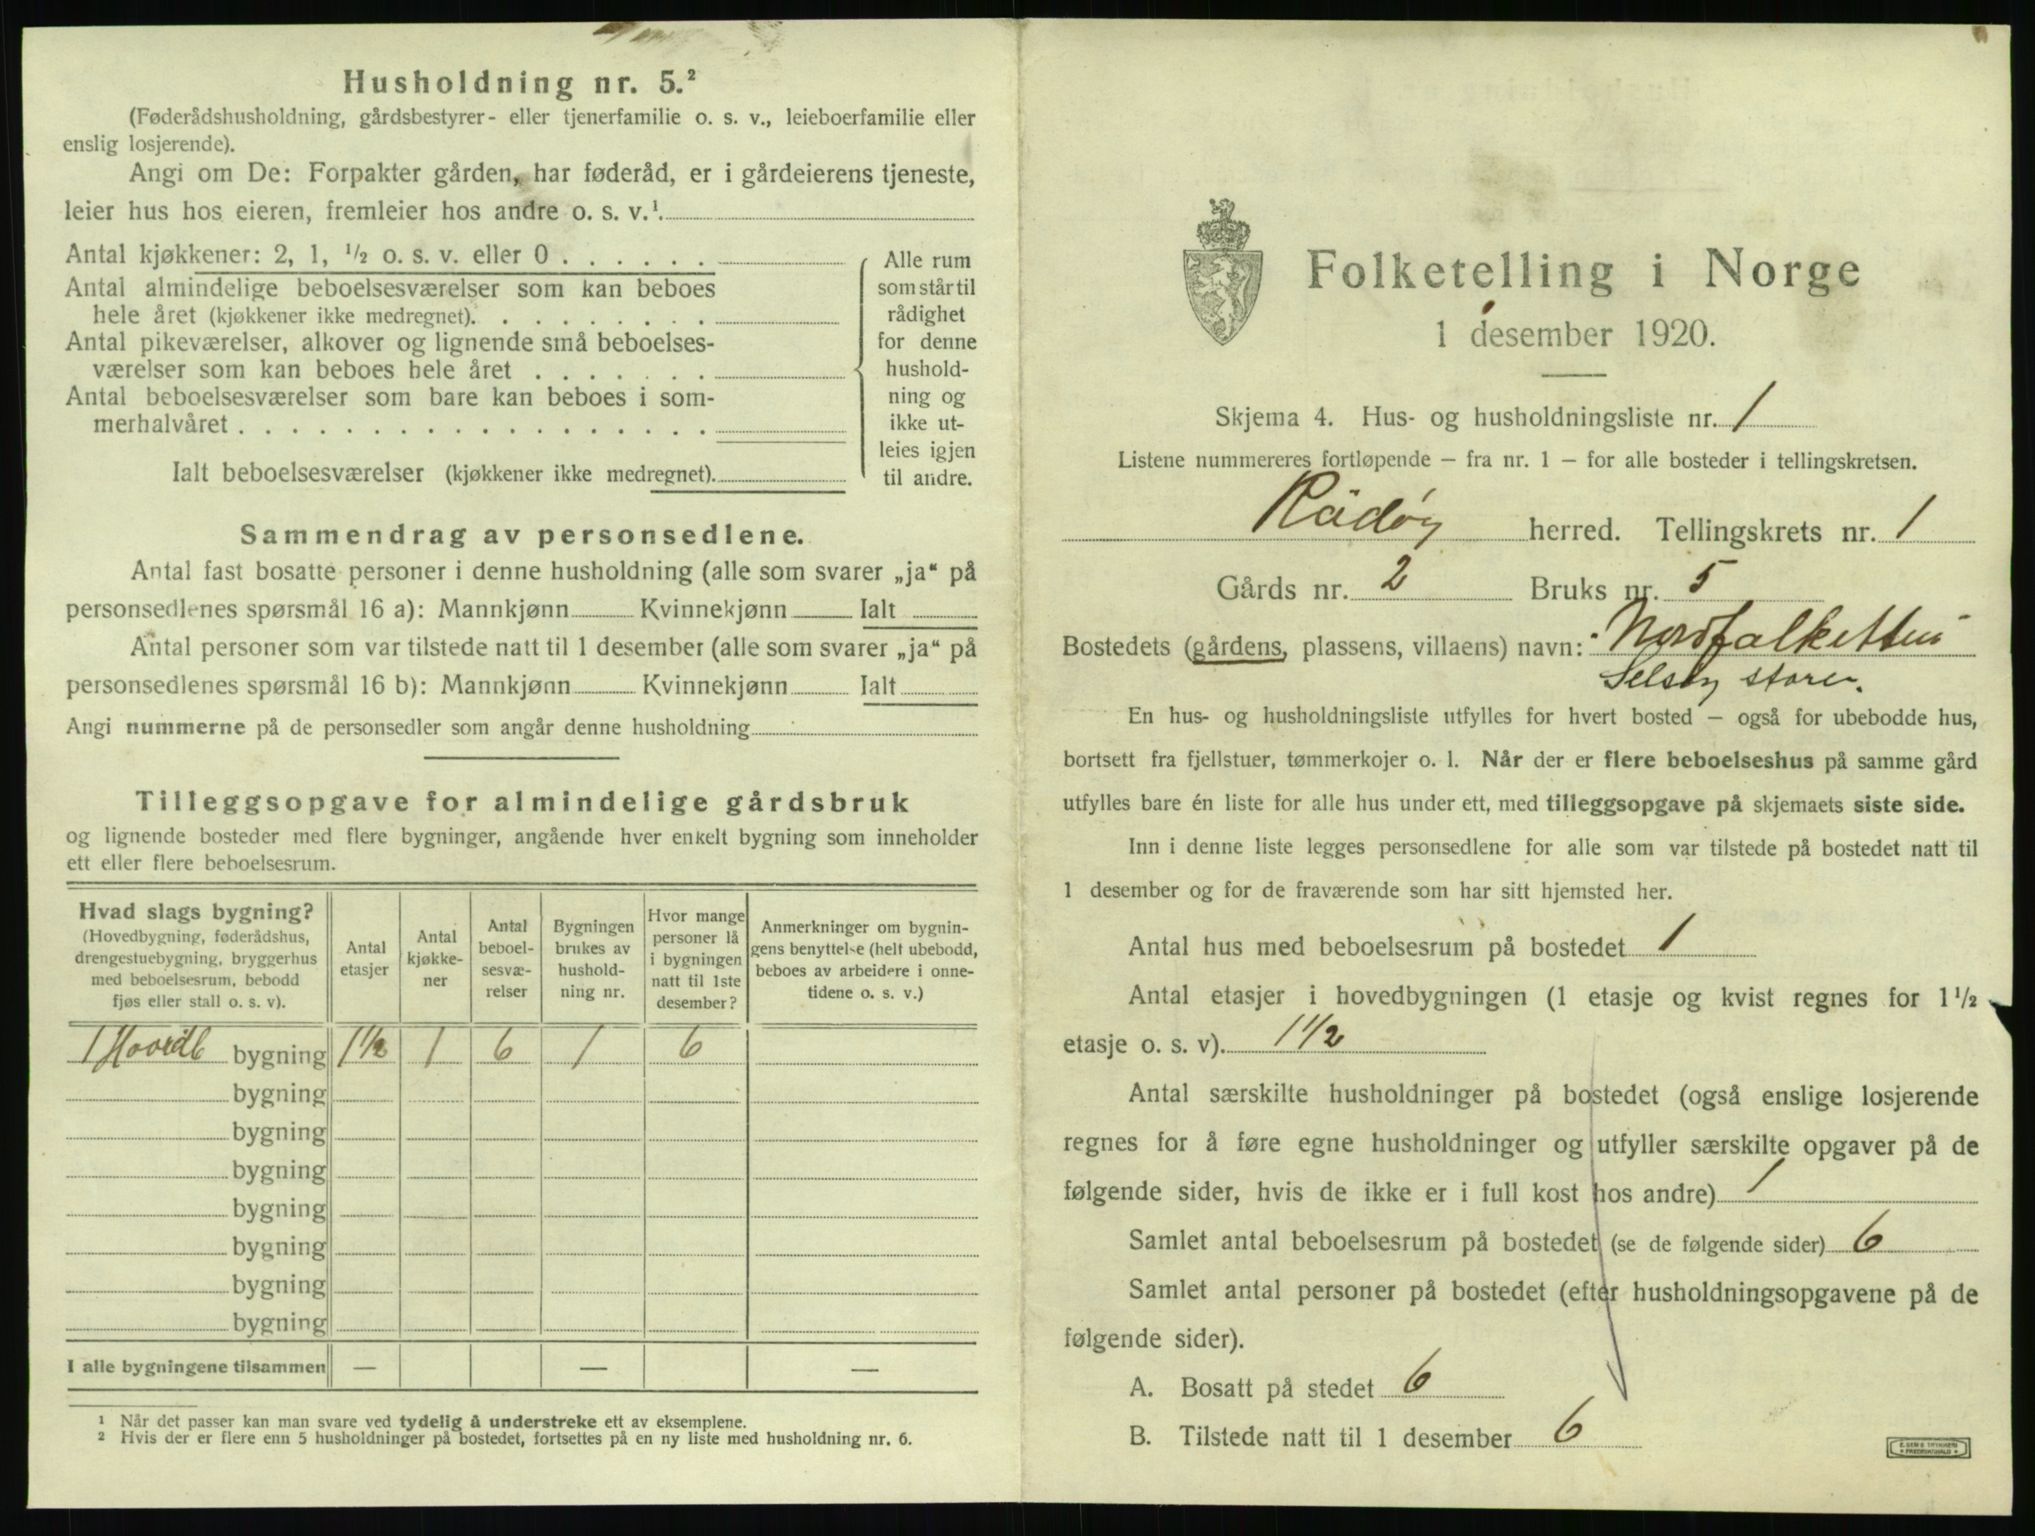 Husholdning nr. 5.²
(Føderådshusholdning, gårdsbestyrer- eller tjenerfamilie o. s. v., leieboerfamilie eller
enslig losjerende).
Angi om De: Forpakter gården, har føderåd, er i gårdeierens tjeneste,
leier hus hos eieren, fremleier hos andre o. s. v.¹
Antal kjøkkener: 2, 1, ½ o. s. v. eller 0 . . . . . .
Antal almindelige beboelsesværelser som kan beboes
hele året (kjøkkener ikke medregnet). . . . . . . . .
Antal pikeværelser, alkover og lignende små beboelses-
værelser som kan beboes hele året . . . . . . .
Antal beboelsesværelser som bare kan beboes i som-
merhalvåret . . . . . . . . . . . . . . . . . .
Ialt beboelsesværelser (kjøkkener ikke medregnet).
Alle rum
som står til
rådighet
for denne
hushold-
ning og
ikke ut-
leies igjen
til andre.
Sammendrag av personsedlene.
Antal fast bosatte personer i denne husholdning (alle som svarer „ja“ på
personsedlenes spørsmål 16 a): Mannkjønn Kvinnekjønn Ialt
Antal personer som var tilstede natt til 1 desember (alle som svarer „ja“ på
personsedlenes spørsmål 16 b): Mannkjønn Kvinnekjønn Ialt
Angi nummerne på de personsedler som angår denne husholdning
Tilleggsopgave for almindelige gårdsbruk
og lignende bosteder med flere bygninger, angående hver enkelt bygning som inneholder
ett eller flere beboelsesrum.
Hvad slags bygning?
(Hovedbygning, føderådshus,
drengestuebygning, bryggerhus
med beboelsesrum, bebodd
fjøs eller stall o. s. v).
Antal
etasjer
Antal
kjøkke-
ner
Antal
beboel-
sesvæ-
relser
Bygningen
brukes av
hushold-
ning nr.
Hvor mange
personer lå
i bygningen
natt til 1ste
desember?
Anmerkninger om bygnin-
gens benyttelse (helt ubebodd,
beboes av arbeidere i onne-
tidene o. s. v.)
1 bygning 1½ 1 6 1 6
bygning
bygning
bygning
bygning
bygning
bygning
bygning
I alle bygningene tilsammen — — —
¹ Når det passer kan man svare ved tydelig å understreke ett av eksemplene.
² Hvis der er flere enn 5 husholdninger på bostedet, fortsettes på en ny liste med husholdning nr. 6.
Folketelling i Norge
1 desember 1920.
Skjema 4. Hus- og husholdningsliste nr. 1
Listene nummereres fortløpende – fra nr. 1 – for alle bosteder i tellingskretsen.
Radøy herred. Tellingskrets nr. 1
Gårds nr. 2 Bruks nr. 5
Bostedets (gårdens, plassens, villaens) navn:
Selsøy store.
En hus- og husholdningsliste utfylles for hvert bosted – også for ubebodde hus,
bortsett fra fjellstuer, tømmerkojer o. l. Når der er flere beboelseshus på samme gård
utfylles bare én liste for alle hus under ett, med tilleggsopgave på skjemaets siste side.
Inn i denne liste legges personsedlene for alle som var tilstede på bostedet natt til
1 desember og for de fraværende som har sitt hjemsted her.
Antal hus med beboelsesrum på bostedet 1
Antal etasjer i hovedbygningen (1 etasje og kvist regnes for 1½
etasje o. s. v). 1½
Antal særskilte husholdninger på bostedet (også enslige losjerende
regnes for å føre egne husholdninger og utfyller særskilte opgaver på de
følgende sider, hvis de ikke er i full kost hos andre) 1
Samlet antal beboelsesrum på bostedet (se de følgende sider) 6
Samlet antal personer på bostedet (efter husholdningsopgavene på de
følgende sider).
A. Bosatt på stedet 6
B. Tilstede natt til 1 desember 6